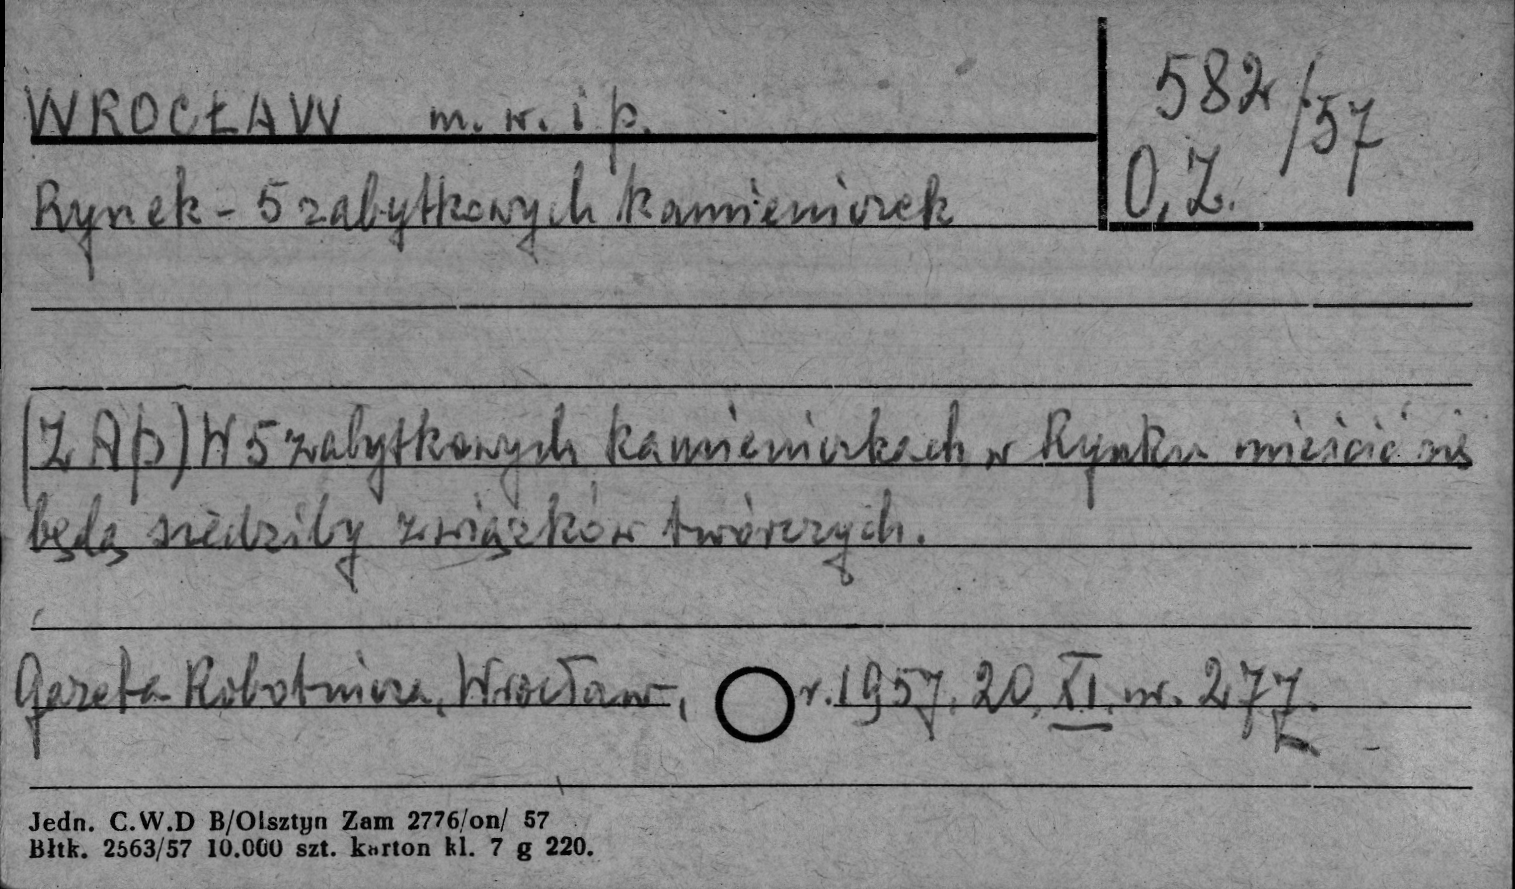 WROCŁAW m. w. i p.
582/57
O.Z.
Rynek - 5 zabytkowych kamieniczek
(ZAP) W 5 zabytkowych kamieniczkach w Rynku mieścić się
będą siedziby związków twórczych.
Gazeta Robotnicza, Wrocław, r. 1957. 20. XI. nr. 277.
Jedn. C.W.D B/Olsztyn Zam 2776/on/ 57
Błtk. 2563/57 10.000 szt. karton kl. 7 g 220.